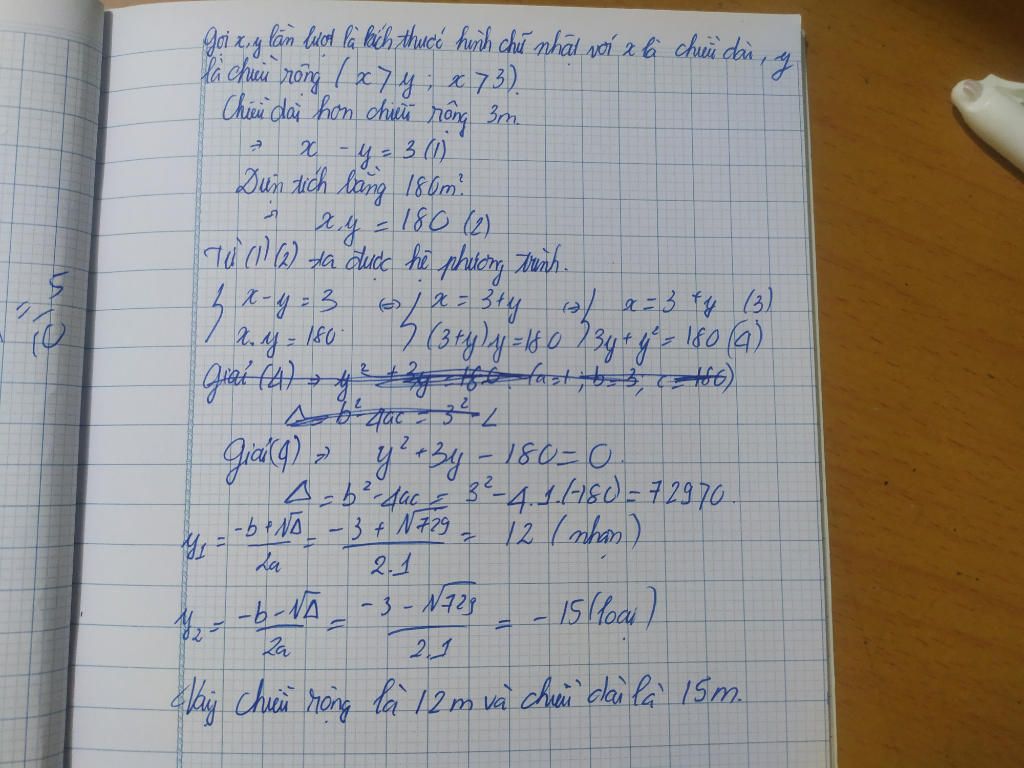 Gọi x,y lần lượt là kích thước hình chữ nhật với x là chiều dài, y
là chiều rộng (x > y ; x > 3)
Chiều dài hơn chiều rộng 3m.
⇒ x - y = 3 (1)
Diện tích bằng 180m².
⇒ x.y = 180 (2)
Từ (1) (2) ta được hệ phương trình.
{ x - y = 3 ⇔ { x = 3+y ⇔ { x = 3 + y (3)
x.y = 180 (3+y)y = 180 3y + y² = 180 (4)
Giải (4) ⇒ y² + 3y = 180 (a=1; b=3; c=-180)
Δ = b² - 4ac = 3² - 4
Giải (4) ⇒ y² + 3y - 180 = 0.
Δ = b² - 4ac = 3² - 4.1.(-180) = 729 > 0.
y₁ = (-b + √Δ)/2a = (-3 + √729)/2.1 = 12 (nhận)
y₂ = (-b - √Δ)/2a = (-3 - √729)/2.1 = -15 (loại)
Vậy chiều rộng là 12m và chiều dài là 15m.
5
=
10